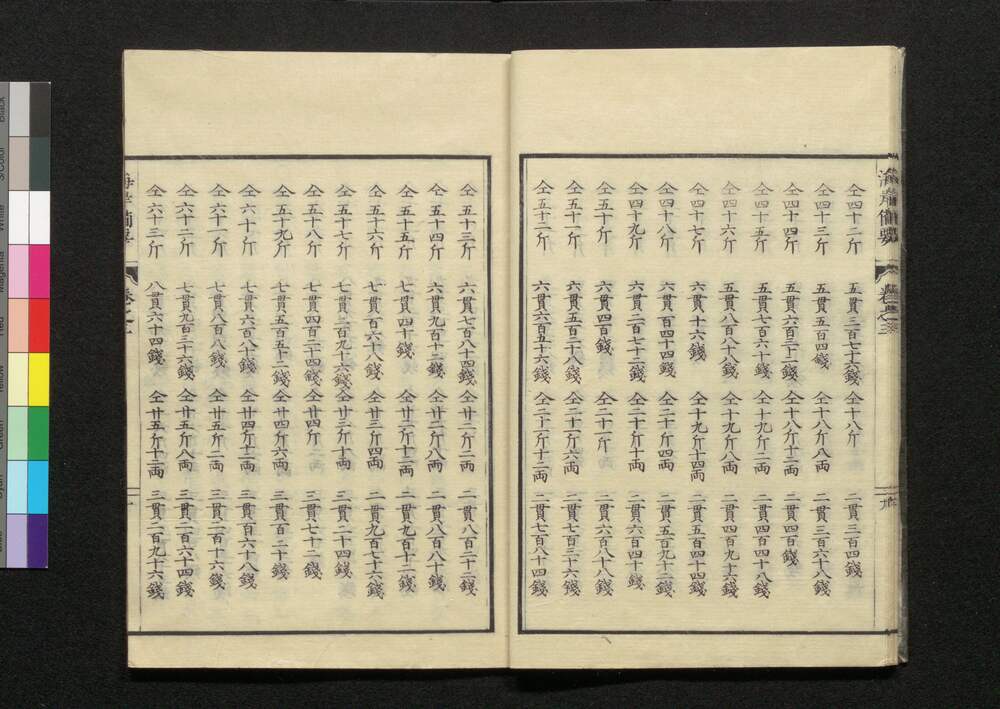 仝四十二斤 五貫三百七十六錢 仝十八斤 二貫三百四錢
仝四十三斤 五貫五百四錢 仝十八斤八両 二貫三百六十八錢
仝四十四斤 五貫六百三十二錢 仝十八斤十二両 二貫四百錢
仝四十五斤 五貫七百六十錢 仝十九斤二両 二貫四百四十八錢
仝四十六斤 五貫八百八十八錢 仝十九斤八両 二貫四百九十六錢
仝四十七斤 六貫十六錢 仝十九斤十四両 二貫五百四十四錢
仝四十八斤 六貫百四十四錢 仝二十斤四両 二貫五百九十二錢
仝四十九斤 六貫二百七十二錢 仝二十斤十両 二貫六百四十錢
仝五十斤 六貫四百錢 仝二十一斤 二貫六百八十八錢
仝五十一斤 六貫五百二十八錢 仝二十一斤六両 二貫七百三十六錢
仝五十二斤 六貫六百五十六錢 仝二十一斤十二両 二貫七百八十四錢
仝五十三斤 六貫七百八十四錢 仝廿二斤二両 二貫八百三十二錢
仝五十四斤 六貫九百十二錢 仝廿二斤八両 二貫八百八十錢
仝五十五斤 七貫四十錢 仝廿二斤十二両 二貫九百十二錢
仝五十六斤 七貫百六十八錢 仝廿三斤四両 二貫九百七十六錢
仝五十七斤 七貫二百九十六錢 仝廿三斤十両 三貫二十四錢
仝五十八斤 七貫四百二十四錢 仝廿四斤 三貫七十二錢
仝五十九斤 七貫五百五十二錢 仝廿四斤六両 三貫百二十錢
仝六十斤 七貫六百八十錢 仝廿四斤十二両 三貫百六十八錢
仝六十一斤 七貫八百八錢 仝廿五斤二両 三貫二百十六錢
仝六十二斤 七貫九百三十六錢 仝廿五斤八両 三貫二百六十四錢
仝六十三斤 八貫六十四錢 仝廿五斤十二両 三貫二百九十六錢